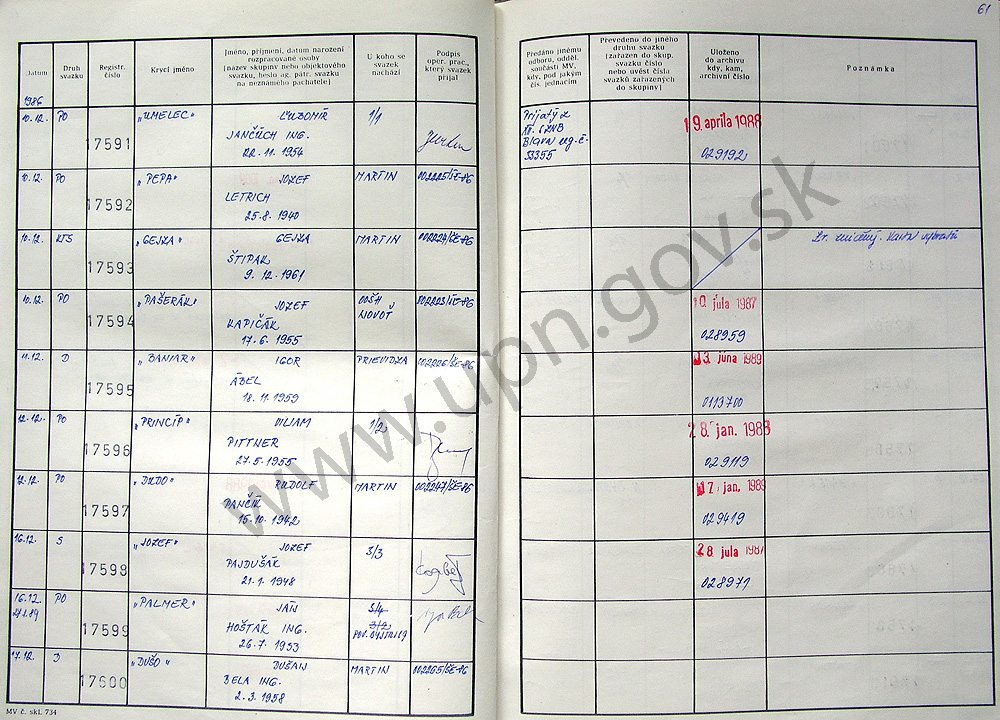 61
Datum
Druh svazku
Registr. číslo
Krycí jméno
Jméno, příjmení, datum narození
rozpracované osoby
(název skupiny nebo objektového
svazku, heslo ag. pátr. svazku
na neznámého pachatele)
U koho se
svazek
nachází
Podpis
oper. prac.,
který svazek
přijal
Předáno jinému
odboru, odděl.
součásti MV,
kdy, pod jakým
čís. jednacím
Převedeno do jiného
druhu svazku
(zařazen do skup.
svazku číslo
nebo uvést čísla
svazků zařazených
do skupiny)
Uloženo
do archivu
kdy, kam,
archivní číslo
Poznámka
1986
10.12. PO 17591 "UMELEC" ĽUBOMÍR 1/1
JANČÚCH ING.
22.11.1954
Prijatý z
ŠtB
53355
19. apríla 1988
029192
10.12. PO 17592 "PEPA" JOZEF MARTIN 002225/ŠE-86
LETRICH
25.8.1940
10.12. KTS 17593 "GEJZA" GEJZA MARTIN 002224/ŠE-86
ŠTIPAK
9.12.1961
10.12. PO 17594 "PAŠERÁK" JOZEF OOŠH
KAPIČÁK
17.6.1955
10. júla 1987
028959
11.12. D 17595 "BANIAR" IGOR PRIEVIDZA 002226/ŠE-86
ÁBEL
18.11.1959
13. júna 1989
0113700
12.12. PO 17596 "PRINCÍP" VILIAM 1/2
PITTNER
27.5.1955
28. jan. 1988
029119
12.12. PO 17597 "DUDO" RUDOLF MARTIN 002247/ŠE-86
PANČÍK
15.10.1942
17. jan. 1989
029419
16.12. S 17598 "JOZEF" JOZEF 3/3
PAJDUŠÁK
21.1.1948
28. júla 1987
028971
16.12. PO 17599 "PALMER" JÁN 3/4
HOŠTÁK ING. 3/2
26.7.1953
17.12. D 17600 "DUŠO" DUŠAN MARTIN 002265/ŠE-86
BELA ING.
2.3.1958
MV č. skl. 734
www.upn.gov.sk